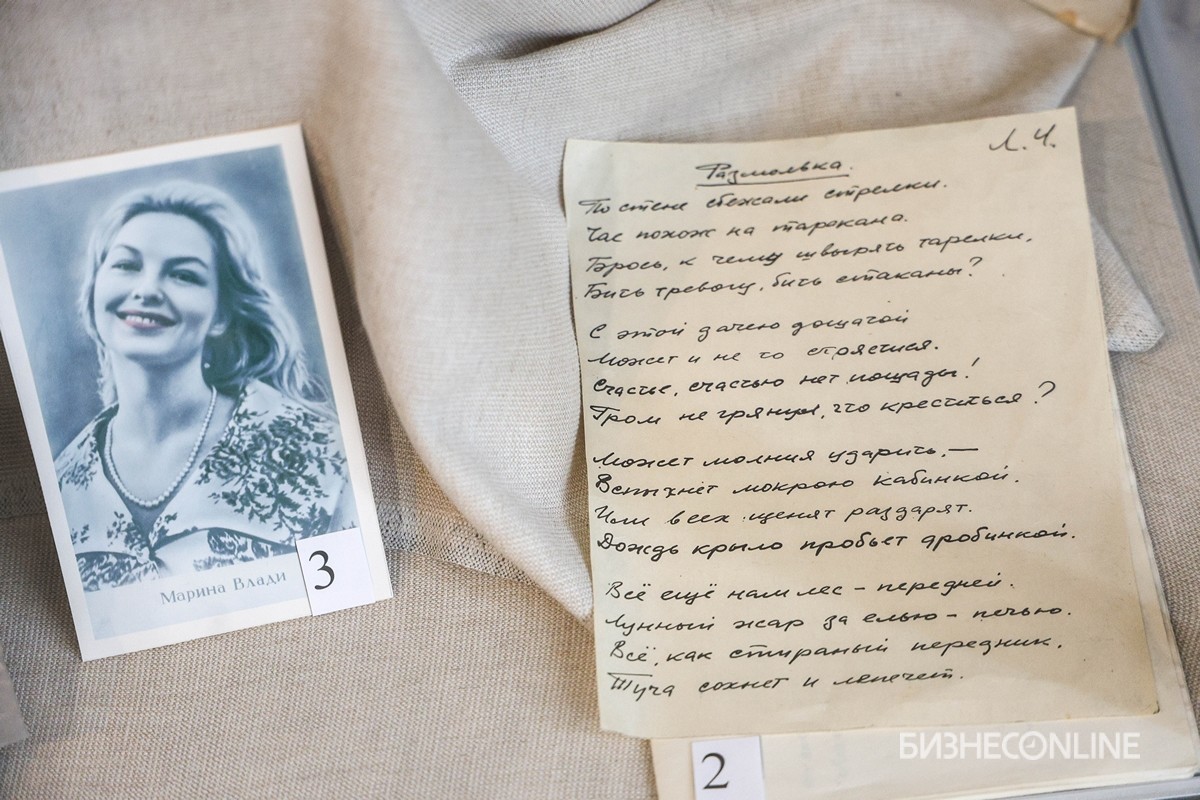 Марина Влади
3
Л.Ч.
Размолвка.
По стене сбежали стрелки.
Час похож на таракана.
Брось, к чему швырять тарелки,
Бить тревогу, бить стаканы?
С этой дачею дощатой
Может и не то стрястися.
Счастье, счастью нет пощады!
Гром не грянул, что креститься?
Может молния ударить, —
Вспыхнет мокрою кабинкой.
Или всех щенят раздарят.
Дождь крыло пробьет дробинкой.
Всё ещё нам лес – передней.
Лунный жар за елью – печью.
Всё, как стираный передник,
Туча сохнет и лепечет.
2
БИЗНЕСONLINE